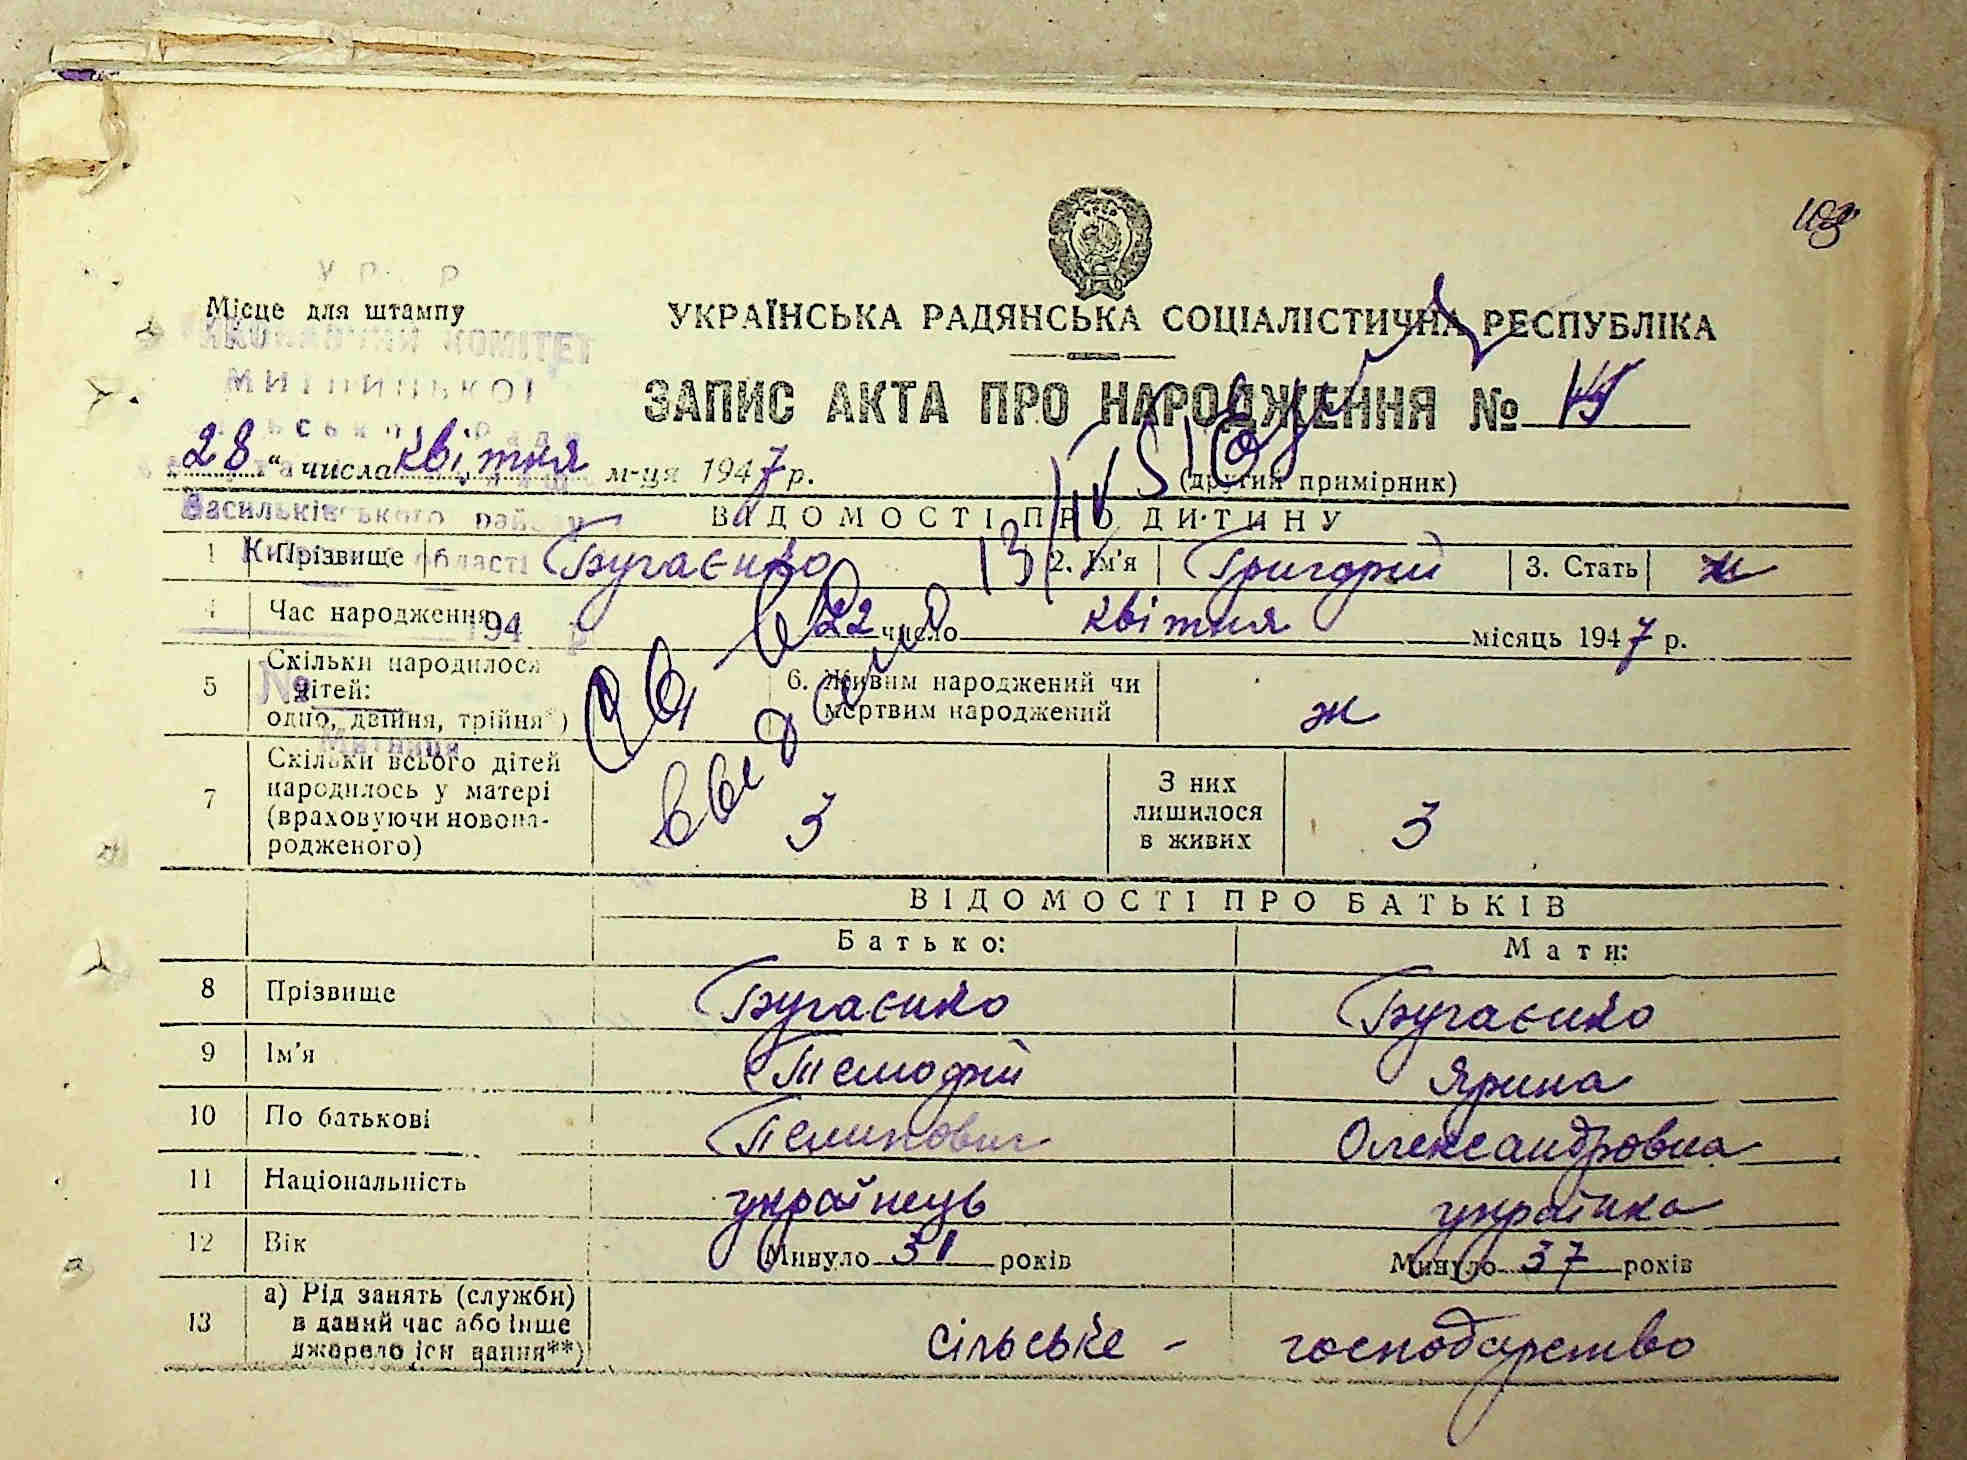 103
УКРАЇНСЬКА РАДЯНСЬКА СОЦІАЛІСТИЧНА РЕСПУБЛІКА
Місце для штампу
КОМІТЕТ
Васильківського району
області
194
№
Митниця
ЗАПИС АКТА ПРО НАРОДЖЕННЯ №
(другий примірник)
28 " числа квітня м-ця 1947 р.
ВІДОМОСТІ ПРО ДИТИНУ
1 Прізвище Бугаєнко 2. Ім'я Григорий 3. Стать ж
4 Час народження 22 число квітня місяць 1947 р.
5 Скільки народилося дітей: одно, двійня, трійня*) 6. Живим народжений чи мертвим народжений ж
7 Скільки всього дітей народилось у матері (враховуючи новона-родженого) 3 З них лишилося в живих 3
ВІДОМОСТІ ПРО БАТЬКІВ
Батько: Мати:
8 Прізвище Бугаєнко Бугаєнко
9 Ім'я Ярина
10 По батькові Олександровна
11 Національність українець українка
12 Вік Минуло 31 років Минуло 37 років
13 а) Рід занять (служби) в даний час або інше джерело існування**) сільське - господарство